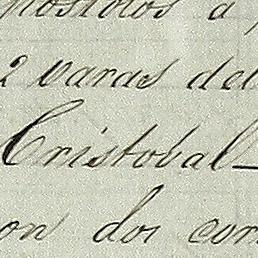 postolos a
2 varas del
Cristobal-
on dos cor